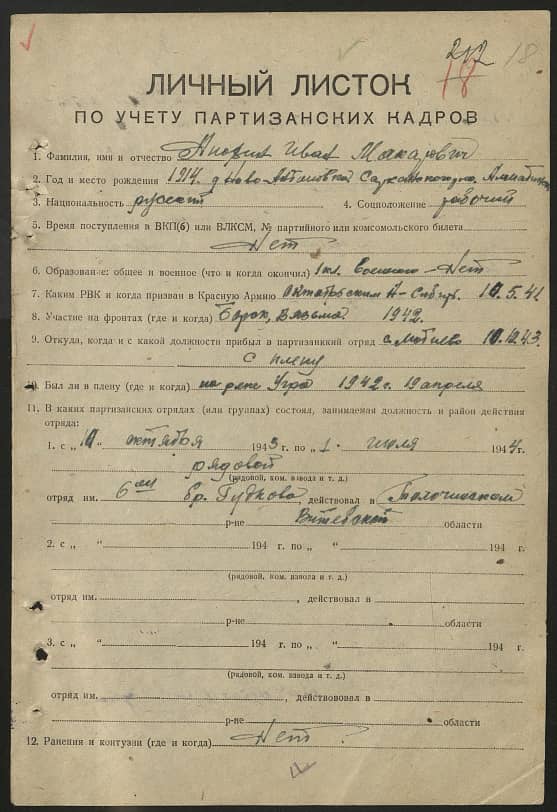 212 18
18
ЛИЧНЫЙ ЛИСТОК
ПО УЧЕТУ ПАРТИЗАНСКИХ КАДРОВ
1. Фамилия, имя и отчество Иван Макарович
2. Год и место рождения 1914.
3. Национальность русский 4. Соцположение рабочий
5. Время поступления в ВКП(б) или ВЛКСМ, № партийного или комсомольского билета
Нет
6. Образование: общее и военное (что и когда окончил) 1 кл. Военного - Нет
7. Каким РВК и когда призван в Красную Армию 10.5.41
8. Участие на фронтах (где и когда) Вязьма. 1942.
9. Откуда, когда и с какой должности прибыл в партизанский отряд 10.12.43.
с плену
10. Был ли в плену (где и когда) на реке Угра 1942 г. 19 апреля
11. В каких партизанских отрядах (или группах) состоял, занимаемая должность и район действия
отряда:
1. с „10“ октября 1943 г. по „1“ июля 1944 г.
рядовой
(рядовой, ком. взвода и т. д.)
отряд им. 6 бр. Гудкова, действовал в Толочинском
р-не Витебской области
2. с „ “ 194 г. по „ “ 194 г.
(рядовой, ком. взвола и т. д.)
отряд им. , действовал в
р-не области
3. с „ “ 194 г. по „ “ 194 г.
(рядовой, ком. взвода и т. д.)
отряд им. , действововал в
р-не области
12. Ранения и контузии (где и когда) Нет.